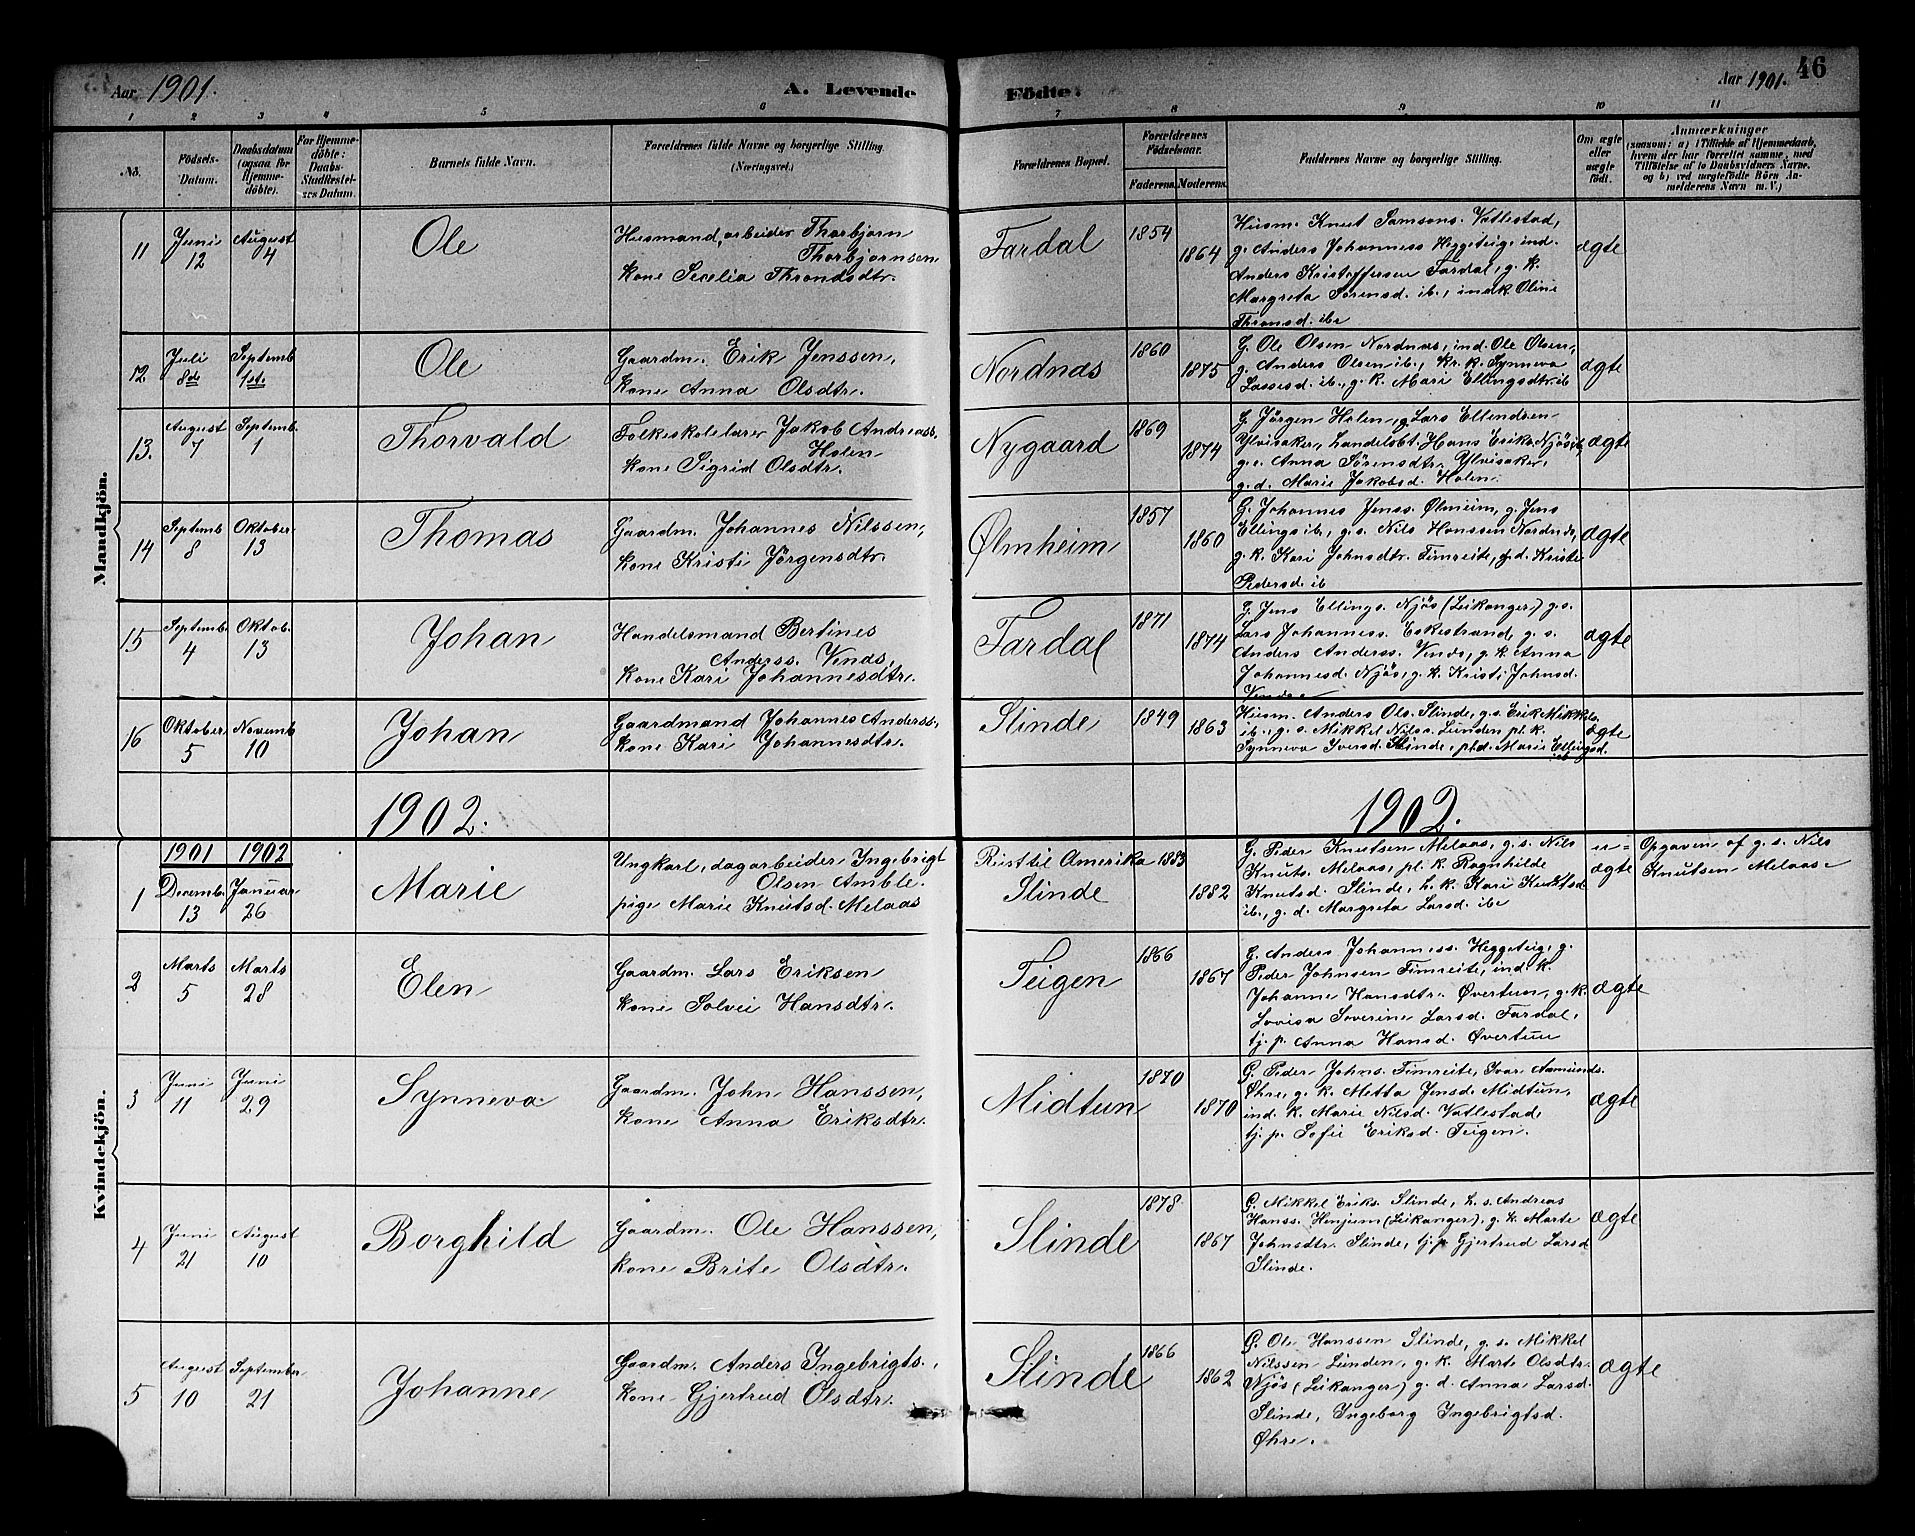 Aar 1901.
A. Levende Födte.
Aar 1901. 46
1 2 3 4 5 6 7 8 9 10 11
No.
Födsels-Datum.
Daabsdatum (ogsaa for Hjemmedöbte).
For Hjemmedöbte: Daabs-Stadfæstelses Datum.
Barnets fulde Navn.
Forældrenes fulde Navne og borgerlige Stilling.
(Næringsvei.)
Forældrenes Bopæl.
Forældrenes Födselsaar.
Faderens. Moderens.
Faddernes Navne og borgerlige Stilling.
Om ægte eller uægte födt.
Anmærkninger
(saasom: a) i Tilfælde af Hjemmedaab,
hvem der har forrettet samme, med
Tilföielse af to Daabsvidners Navne,
og b) ved uægtefödte Börn An-
melderens Navn m. V.)
Mandkjön.
11 Juni 12 August 4 Ole
Husmand, arbeider Thorbjørn
Thorbjørnsen
kone Secelia Throndsdtr.
Fardal 1854 1864
Husm. Knut Samsons. Vatlestad,
g. Anders Johanness Heggeteig, ind.
Anders Kristoffersen Fardal, g. k.
Margreta Sørensd. ib., ind.k. Oline
Thronsd. ib.
ægte
12 Juli 8de Septemb. 1st. Ole
Gaardm. Erik Jenssen,
kone Anna Olsdtr.
Nordnæs 1860 1875
G. Ole Olsen Nordnæs, ind. Ole Olsen,
g. Anders Olsen ib., kr. k. Synneva
Lassesd. ib., g. k. Mari Ellingsdtr. ib
ægte
13. August 7 Septemb. 1 Thorvald
Folkeskolelærer Jakob Andreass.
Holen
kone Sigrid Olsdtr.
Nygaard 1869 1874
G. Jörgen Holen, g. Lars Ellendsen
Ylvisaker, Landelsbt. Hans Eriks. Njøs ib,
g. e. Anna Sörensdtr. Ylvisaker,
g. d. Marie Jakobsd. Holen.
ægte
14 Septemb 8 Oktober 13 Thomas
Gaardm. Johannes Nilssen,
kone Kristi Jörgensdtr.
Ølmheim 1857 1860
G. Johannes Jenss. Ølmheim, g. Jens
Ellings ib., g. s. Nils Hanssen Nordnæs,
g. k. Kari Johnsdtr. Fimreite, g. d. Kristi
Pedersd. ib
ægte
15 Septemb. 4 Oktob. 13 Johan
Handelsmand Bertines
Anderss. Venås,
kone Kari Johannesdtr.
Fardal 1871 1874
G. Jens Ellings. Njøs (Leikanger) g. s.
Lars Johanness. Eskestrand g. s.
Anders Anderss. Venås, g. k. Anna
Johannesd. Njøs, g. k. Kristi Johnsd.
ægte
16 Oktober 5 Novemb 10 Johan
Gaardmand Johannes Anderss.,
kone Kari Johannesdtr.
Slinde 1849 1863
Husm. Anders Ols. Slinde, g. s. Erik Mikkels.
ib., g. s. Mikkel Nilss. Lunden pl. k.
Synneva Iversd. Slinde, pl. d. Marie Ellingsd.
ib
ægte
1902. 1902.
Kvindekjön.
1901 1902
1 Decemb. 13 Januar 26 Marie
Ungkarl, dagarbeider Ingebrigt
Olsen Amble.
pige Marie Knutsd. Melaas
Reist til Amerika 1883
Slinde 1882
G. Peder Knutsen Melaas, g. s. Nils
Knuts. Melaas, pl. k. Ragnhilde
Knutsd. Slinde, h. k. Kari Knutsd
ib., g. d. Margreta Larsd. ib.
u=
ægte
Opgaven af g. s. Nils
Knutsen Melaas
2 Marts 5 Marts 28 Elen
Gaardm. Lars Eriksen
kone Solvei Hansdtr.
Teigen 1866 1867
G. Anders Johanness. Heggeteig, g.
Peder Johnsen Fimreite, ind. k.
Johanne Hansdtr. Øvertun, g. k.
Lovisa Severine Larsd. Fardal,
tj. p. Anna Hansd. Øvertun
ægte
3 Juni 11 Juni 29 Synneva
Gaardm. John Hanssen,
kone Anna Eriksdtr.
Midtun 1870 1870
G. Peder Johns. Fimreite, Ivar Aamunds.
Øhre, g. k. Metta Jensd. Midtun,
ind. k. Marie Nilsd. Vatlestad,
tj. p. Sofie Eriksd. Teigen.
ægte
4 Juni 21 August 10 Borghild
Gaardm. Ole Hanssen,
kone Brite Olsdtr.
Slinde 1878 1867
G. Mikkel Eriks. Slinde, h. s. Andreas
Hanss. Henjum (Leikanger), g. k. Marte
Johnsdtr. Slinde, tj. p. Gjertrud Larsd
Slinde.
ægte
5 August 10 September 21 Johanne
Gaardm. Anders Ingebrigts.,
kone Gjertrud Olsdtr.
Slinde 1866 1862
G. Ole Hanssen Slinde, g. s. Mikkel
Nilssen Lunden, g. k. Marte Olsdtr.
Njøs (Leikanger) g. d. Anna Larsd.
Slinde, Ingeborg Ingebrigtsd.
Øhre.
ægte